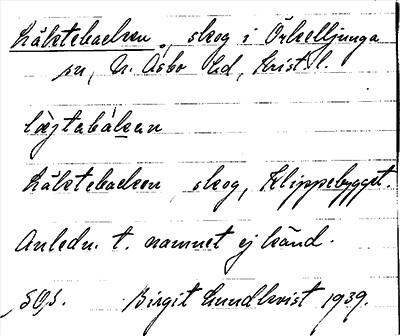 Läktebacken, skog i Örkelljunga
sn, N. Åsbo hd, Krist. l.
läjtabákan
Läktebacken skog, Klippebygget.
Anledn. t. namnet ej känd.
SOS. Birgit Lundkvist 1939.